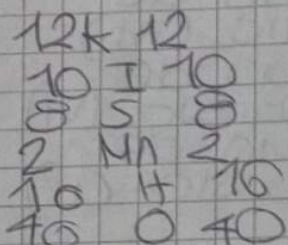 12 K 12
10 I 10
8 S 8
2 Mn 2
16 H 16
46 O 40